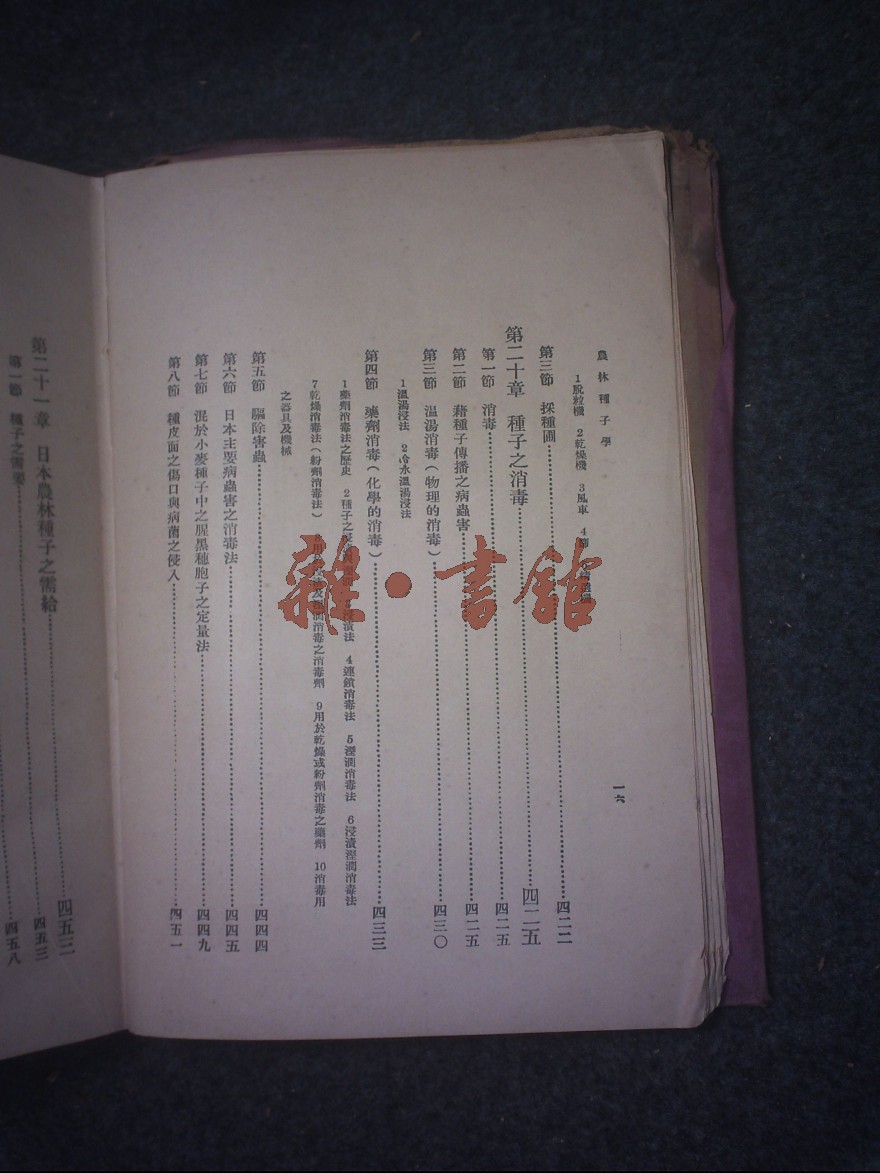 農林種子學
一六
1脫粒機 2乾燥機 3風車 4
第三節 採種圃 四二二
第二十章 種子之消毒 四二五
第一節 消毒 四二五
第二節 藉種子傳播之病蟲害 四二五
第三節 溫湯消毒(物理的消毒) 四三〇
1溫湯浸法 2冷水溫湯浸法
第四節 藥劑消毒(化學的消毒) 四三三
1藥劑消毒法之歷史 2種子之 漬法 4連鎖消毒法 5溼潤消毒法 6浸漬溼潤消毒法
7乾燥消毒法(粉劑消毒法) 潤消毒之消毒劑 9用於乾燥或粉劑消毒之藥劑 10消毒用
之器具及機械
第五節 驅除害蟲 四四四
第六節 日本主要病蟲害之消毒法 四四五
第七節 混於小麥種子中之腥黑穗胞子之定量法 四四九
第八節 種皮面之傷口與病菌之侵入 四五一
第二十一章 日本農林種子之需給 四五三
第一節 種子之需要 四五三
四五八
雜·書館